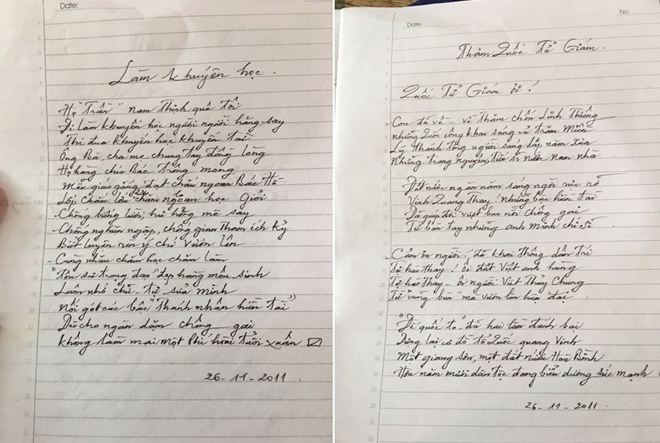 Date:
Làm khuyến học.
Họ "Trần" nam Thịnh quê tôi
Đi làm khuyến học người người hăng say
Thi đua khuyến học khuyến tài
Ông Bà cha mẹ chung tay đồng lòng
Họ hàng chú Bác Trông mong
Mẫu giáo gắng đạt cháu ngoan Bác Hồ
Lớp cháu lớn chăm ngoan học Giỏi
- Chống biếng lười, hư hỏng mê say
- Chống nghiện ngập, chống gian Tham ích kỷ
Biết luyện rèn ý chí Vươn lên
- Cùng nhau chăm học chăm làm
"Tôn sư trọng đạo" đẹp hàng môn sinh
Luôn nhớ chữ tự sửa mình
Nối gót các bậc "Thánh nhân hiền tài"
Dù cho ngàn dặm chông gai
Không làm mai một Phí hoài Tuổi xuân
26-11-2011
Date:
No:
Thăm Quốc Tử Giám.
Quốc Tử Giám ơi!
- Con đã về - về Thăm chốn Linh Thiêng
những Lưới công khai sáng và Trăm Miền
Lý Thánh Tông ngàn sáng lập năm xưa
Những trạng nguyên, tiến sĩ nước nam nhà
Đất nước ngàn năm sáng ngời rực rỡ
Vinh Quang Thay, những bậc hiền tài
Đã giúp đời vượt bao nỗi chông gai
Từ bàn tay những anh Minh chí sĩ
- Cảm ơn người, đã khai Thông dân Trí
Tự hào thay! ơi đất Việt anh hùng
Tự hào thay - ơi người Việt Thủy Chung
Từ vũng bùn mà vươn lên hiện đại
"Đế quốc to" đã hai lần đánh bại
Dừng lại cờ đỏ tổ Quốc quang Vinh
Một giang sơn, một đất nước Hoà Bình
Hơn năm mươi dân tộc đang biểu dương sức mạnh
26-11-2011